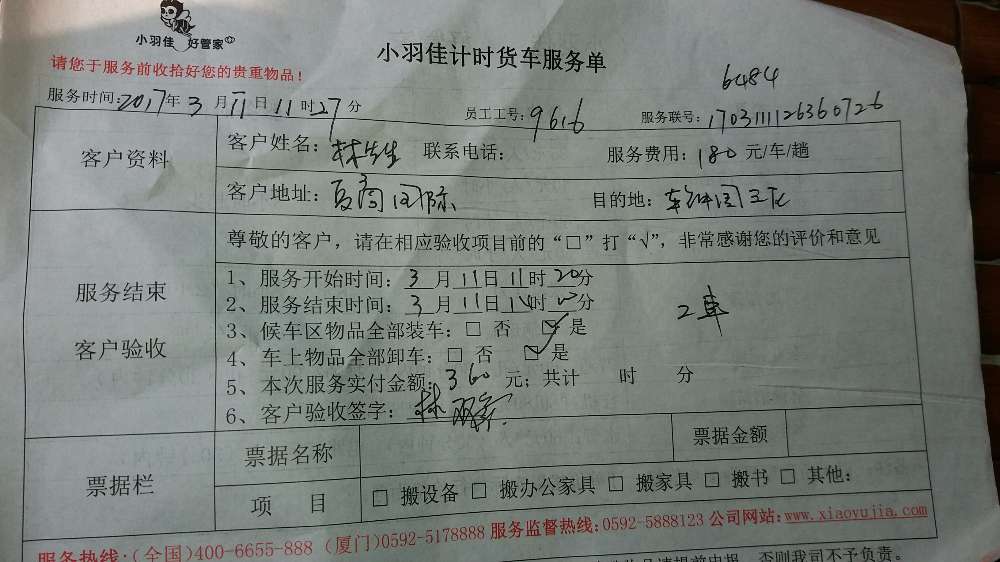 小羽佳 好管家
小羽佳计时货车服务单
请您于服务前收拾好您的贵重物品!
6484
服务时间:2017年3月11日11时27分 员工工号:9616 服务联号:170311126360726
客户资料
客户姓名:林先生 联系电话: 服务费用:180元/车/趟
客户地址:夏商国际 目的地:软件园三期
服务结束
客户验收
尊敬的客户，请在相应验收项目前的“□”打“√”，非常感谢您的评价和意见
1、服务开始时间:3月11日11时20分
2、服务结束时间:3月11日14时00分
2车
3、候车区物品全部装车:□ 否 ☑ 是
4、车上物品全部卸车:□ 否 ☑ 是
5、本次服务实付金额:360元;共计 时 分
6、客户验收签字:林
票据栏
票据名称 票据金额
项 目 □ 搬设备 □ 搬办公家具 □ 搬家具 □ 搬书 □ 其他:
服务热线:(全国)400-6655-888 (厦门)0592-5178888 服务监督热线:0592-5888123 公司网站:www.xiaoyujia.com
否则我司不予负责。